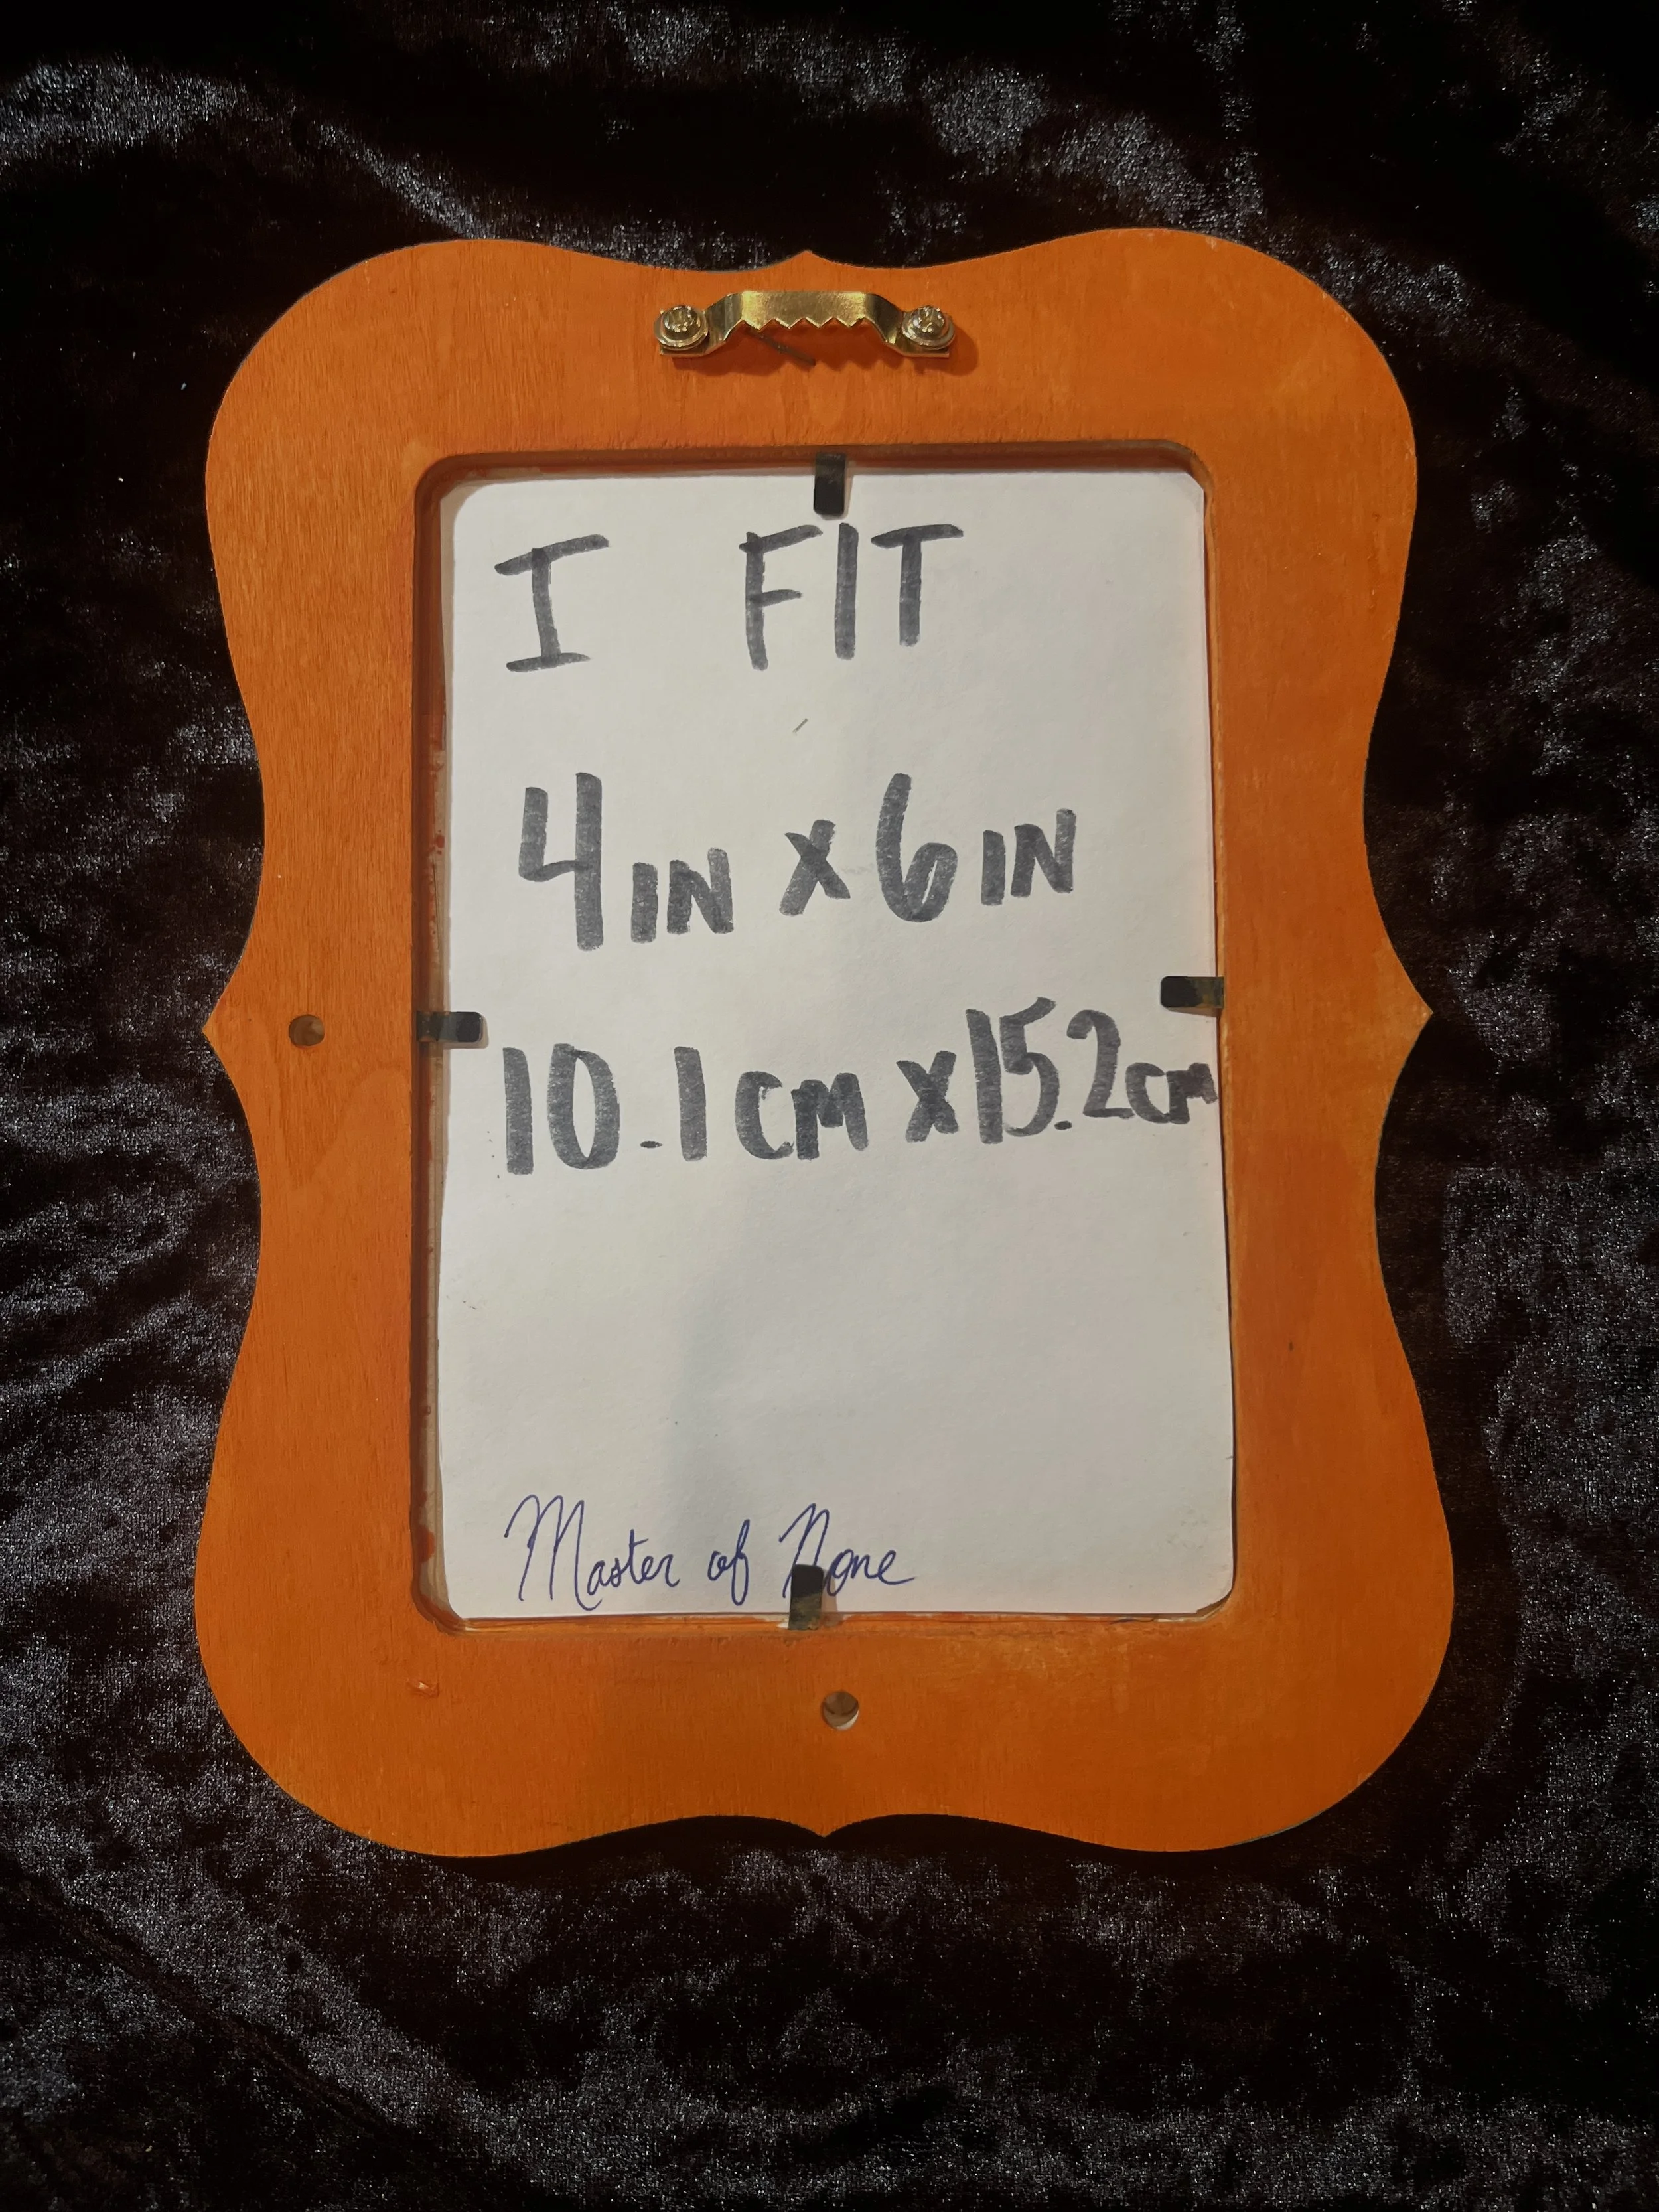 I FIT
4IN X 6IN
10.1cm X 15.2cm
Master of None